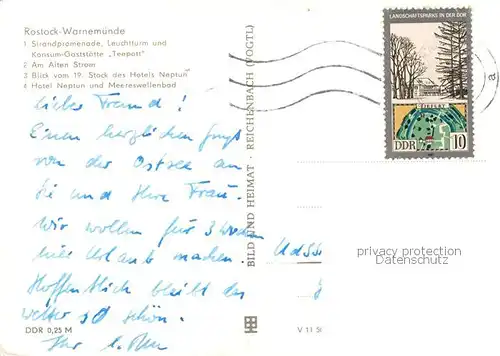 Rostock-Warnemünde
1 Strandpromenade, Leuchtturm und
Konsum-Gaststätte „Teepott"
2 Am Alten Strom
3 Blick vom 19. Stock des Hotels Neptun
4 Hotel Neptun und Meereswellenbad
Liebes Freund!
Einen herzlichen
von der Ostsee an
Sie und Ihre Frau.
Wir wollen für 3 Wochen
hier Urlaub machen.
Hoffentlich bleibt das
Wetter so schön.
Ihr
DDR 0,25 M
BILD UND HEIMAT · REICHENBACH (VOGTL)
V 11 50
LANDSCHAFTSPARKS IN DER DDR
DDR 10
a
UdSS
privacy protection
Datenschutz